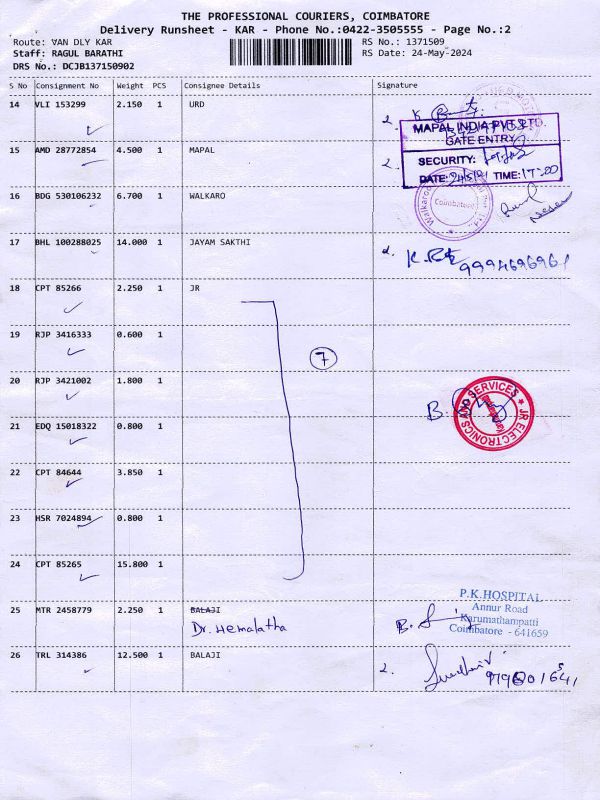 THE PROFESSIONAL COURIERS, COIMBATORE
Delivery Runsheet - KAR - Phone No.:0422-3505555 - Page No.:2
Route: VAN DLY KAR RS No.: 1371509
Staff: RAGUL BARATHI RS Date: 24-May-2024
DRS No.: DCJB137150902
S No Consignment No Weight PCS Consignee Details Signature
14 VLI 153299 2.150 1 URD
2.
MAPAL INDIA PVT. LTD.
GATE ENTRY
15 AMD 28772854 4.500 1 MAPAL 2.
SECURITY:
DATE: TIME: 17:00
16 BDG 530106232 6.700 1 WALKARO
Coimbatore
17 BHL 100288025 14.000 1 JAYAM SAKTHI
9994696961
18 CPT 85266 2.250 1 JR
19 RJP 3416333 0.600 1
7
20 RJP 3421002 1.800 1
B.
JR ELECTRONICS AND SERVICES
21 EDQ 15018322 0.800 1
22 CPT 84644 3.850 1
23 HSR 7024894 0.800 1
24 CPT 85265 15.800 1
P.K.HOSPITAL
Annur Road
Karumathampatti
Coimbatore - 641659
25 MTR 2458779 2.250 1 BALAJI
Dr. Hemalatha B.
26 TRL 314386 12.500 1 BALAJI 2.